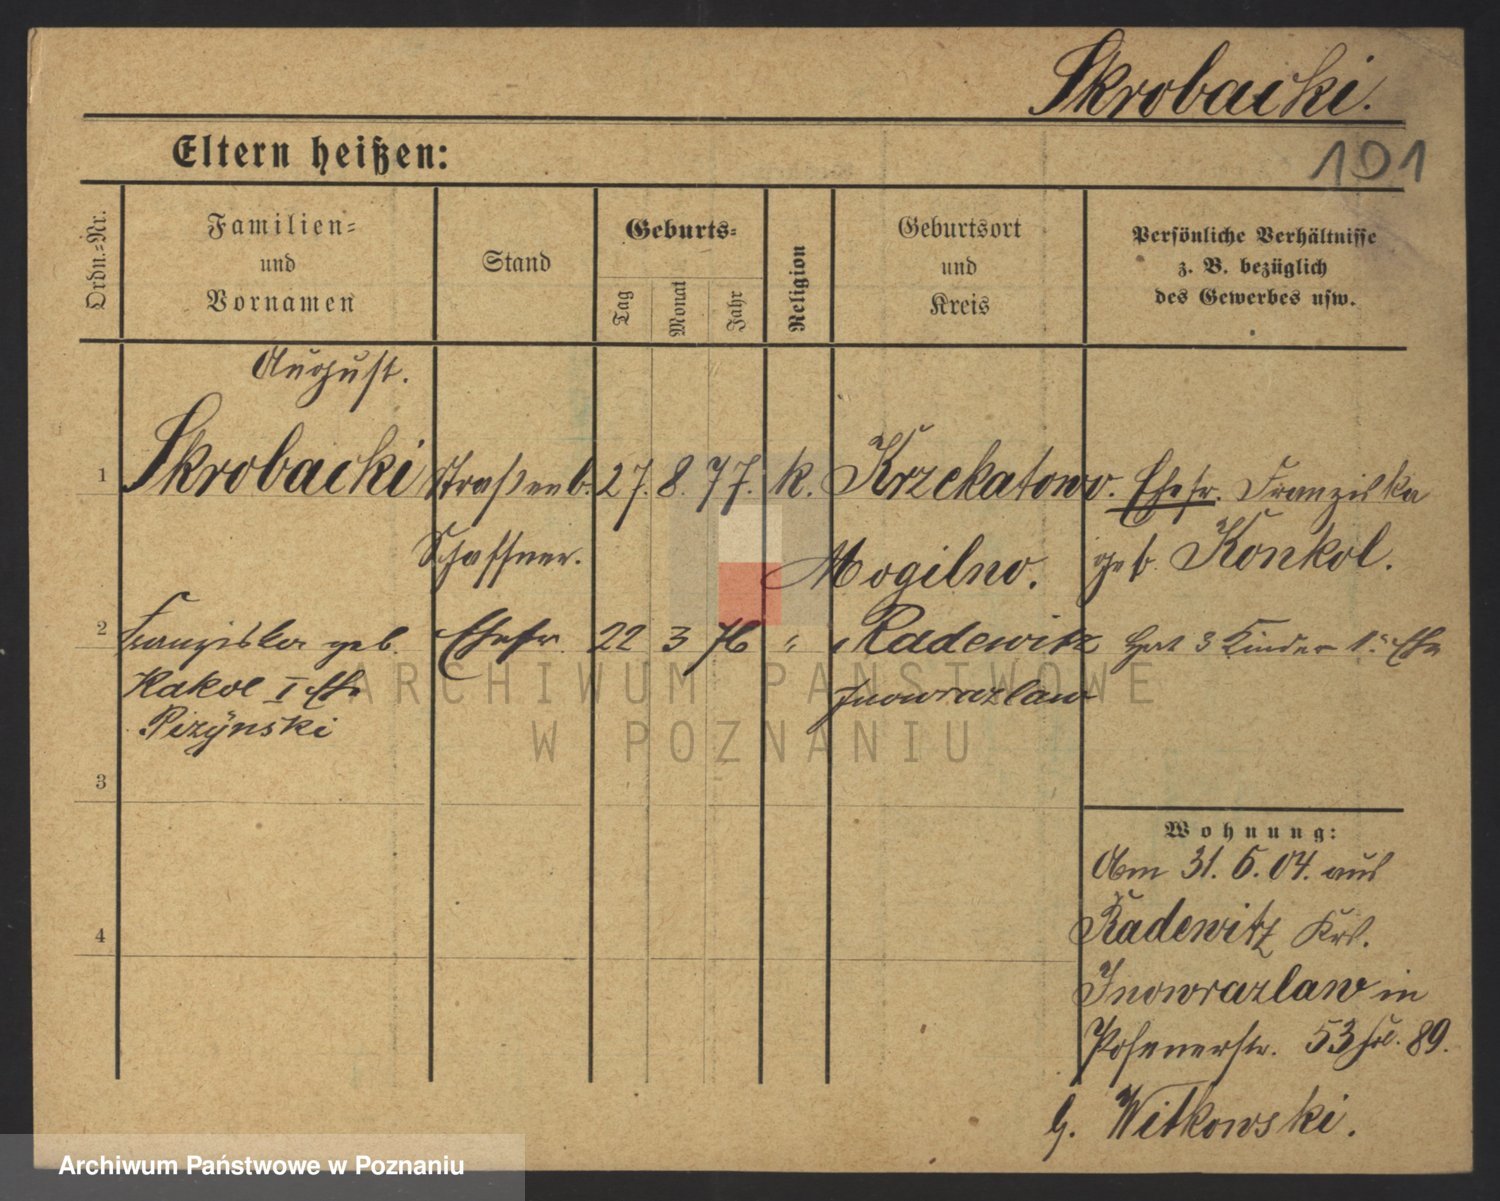 Skrobacki.
101
Eltern heißen:
Ordn.-Nr.
Familien-
und
Vornamen
Stand
Geburts-
Tag
Monat
Jahr
Religion
Geburtsort
und
Kreis
Persönliche Verhältnisse
z. B. bezüglich
des Gewerbes usw.
August.
1 Skrobacki Straßenb. 27. 8. 77. K. Krzekatowo. Ehefr. Franziska
Schaffner. Mogilno. geb. Konkol.
2 Franziska geb. Ehefr. 22 3 76 " Radewitz hat 3 Kinder 1. Ehe
Kakol I Ehe Inowrazlaw
Pizynski
3
4
Wohnung:
Am 31. 5. 04. aus
Radewitz Krs.
Inowrazlaw in
Posenerstr. 53 89.
b. Witkowski.
ARCHIWUM PAŃSTWOWE
W POZNANIU
Archiwum Państwowe w Poznaniu